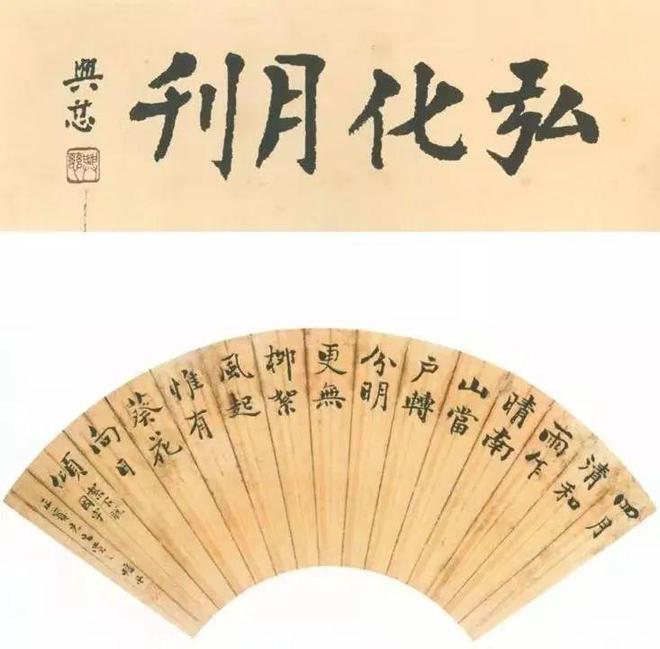 弘化月刊
興慈
四月
清和
雨乍
晴南
山當
户轉
分明
更無
柳絮
風起
惟有
葵花
向日
傾